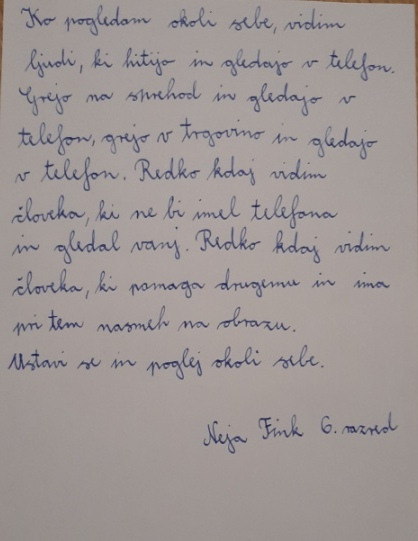 Ko pogledam okoli sebe, vidim
ljudi, ki hitijo in gledajo v telefon.
Grejo na sprehod in gledajo v
telefon, grejo v trgovino in gledajo
v telefon. Redko kdaj vidim
človeka, ki ne bi imel telefona
in gledal vanj. Redko kdaj vidim
človeka, ki pomaga drugemu in ima
pri tem nasmeh na obrazu.
Ustavi se in poglej okoli sebe.
Neja Fink 6. razred